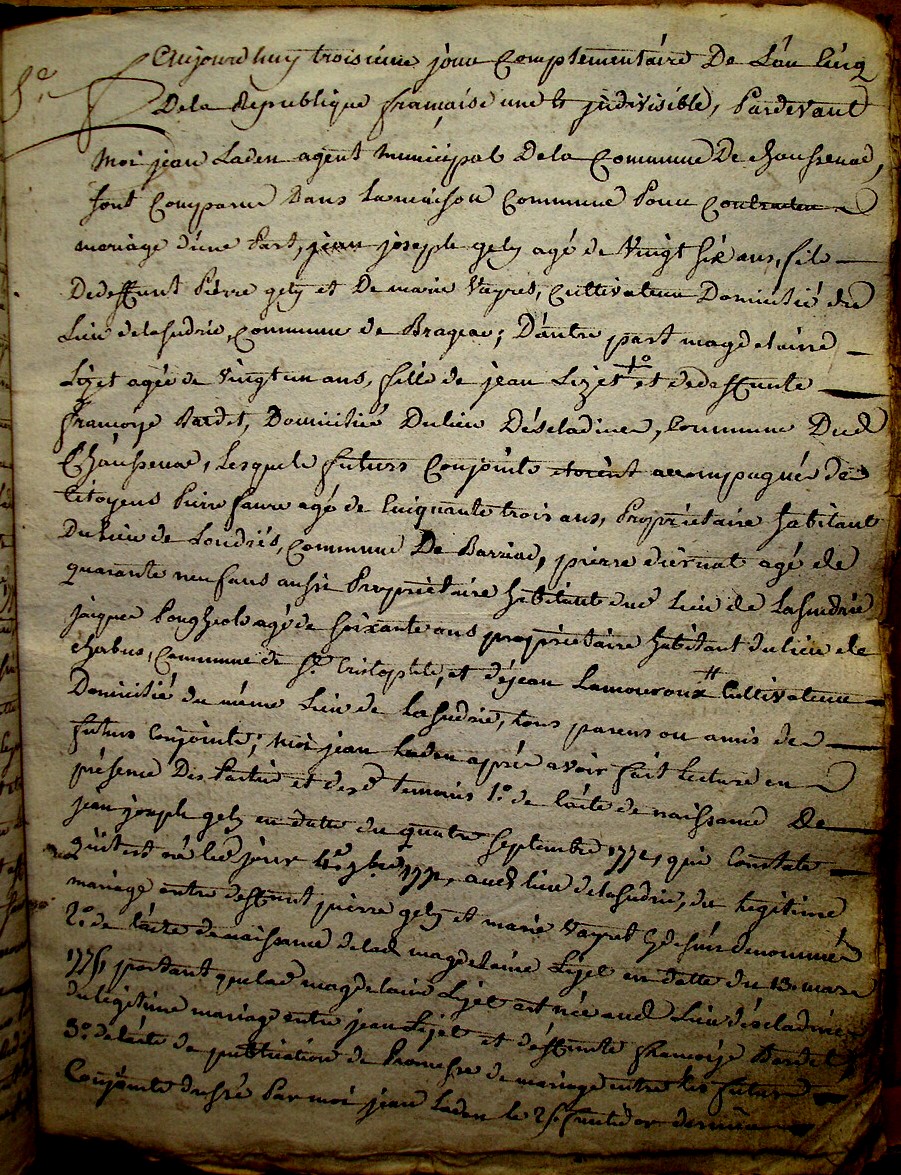 Aujourd huy troisieme jour Complementaire De L'an Cinq
De la Republique francaise une & jndivisible, Pardevant
Moi jean Laden agent municipal De la Commune De chaussenac,
sont Comparus Dans La maison Commune Pour Contracter
mariage d'une Part, jean joseph gely agé de Vingt six ans, fils
De deffunt Pierre gely et De marie Vayret, Cultivateur Domicilié du
Lieu de lasudrie, Commune de Brageac; D'autre part magdelaine
Lizet agée de Vingt un ans, fille de jean Lizet et de deffunte
francoise Bardet, Domiciliée Du lieu Déscladines, Commune Dud
Chaussenac, Lesquels futurs Conjoints etoient accompagnés des
Citoyens Pierre faure agé de Cinquante trois ans, Propriétaire habitant
Du Lieu de Loudiés, Commune De Barriac, pierre diernat agé de
quarante neuf ans aussi Propriétaire habitant dud Lieu de Lasudrie
jacques Pongheols agé de soixante ans propriétaire habitant du lieu de
Commune de St Cristophle, et de jean Lamouroux Cultivateur
Domicilié du même Lieu de Lasudrie, tous parens ou amis des
futurs Conjoints; moi jean Laden après avoir fait Lecture en
présence Des Parties et desd temoins 1o. de l'acte de naissance De
jean joseph gely en datte du quatre septembre 1772, qui Constate
qu'il est né led jour 7bre aud lieu de lasudrie, du Legitime
mariage entre deffunt pierre gely et marie Vayret Cy dessus denommés
2o. de l'acte de naissance de lad magdelaine Lizet en datte du 13 mars
portant que lad magdelaine Lizet est née aud Lieu déscladines
du legitime mariage entre jean Lizet et déffunte francoise Bardet,
3o. de l'acte de publication de Promesse de mariage entre les futurs
Conjoints dressé Par moi jean Laden le 25 fructidor dernier